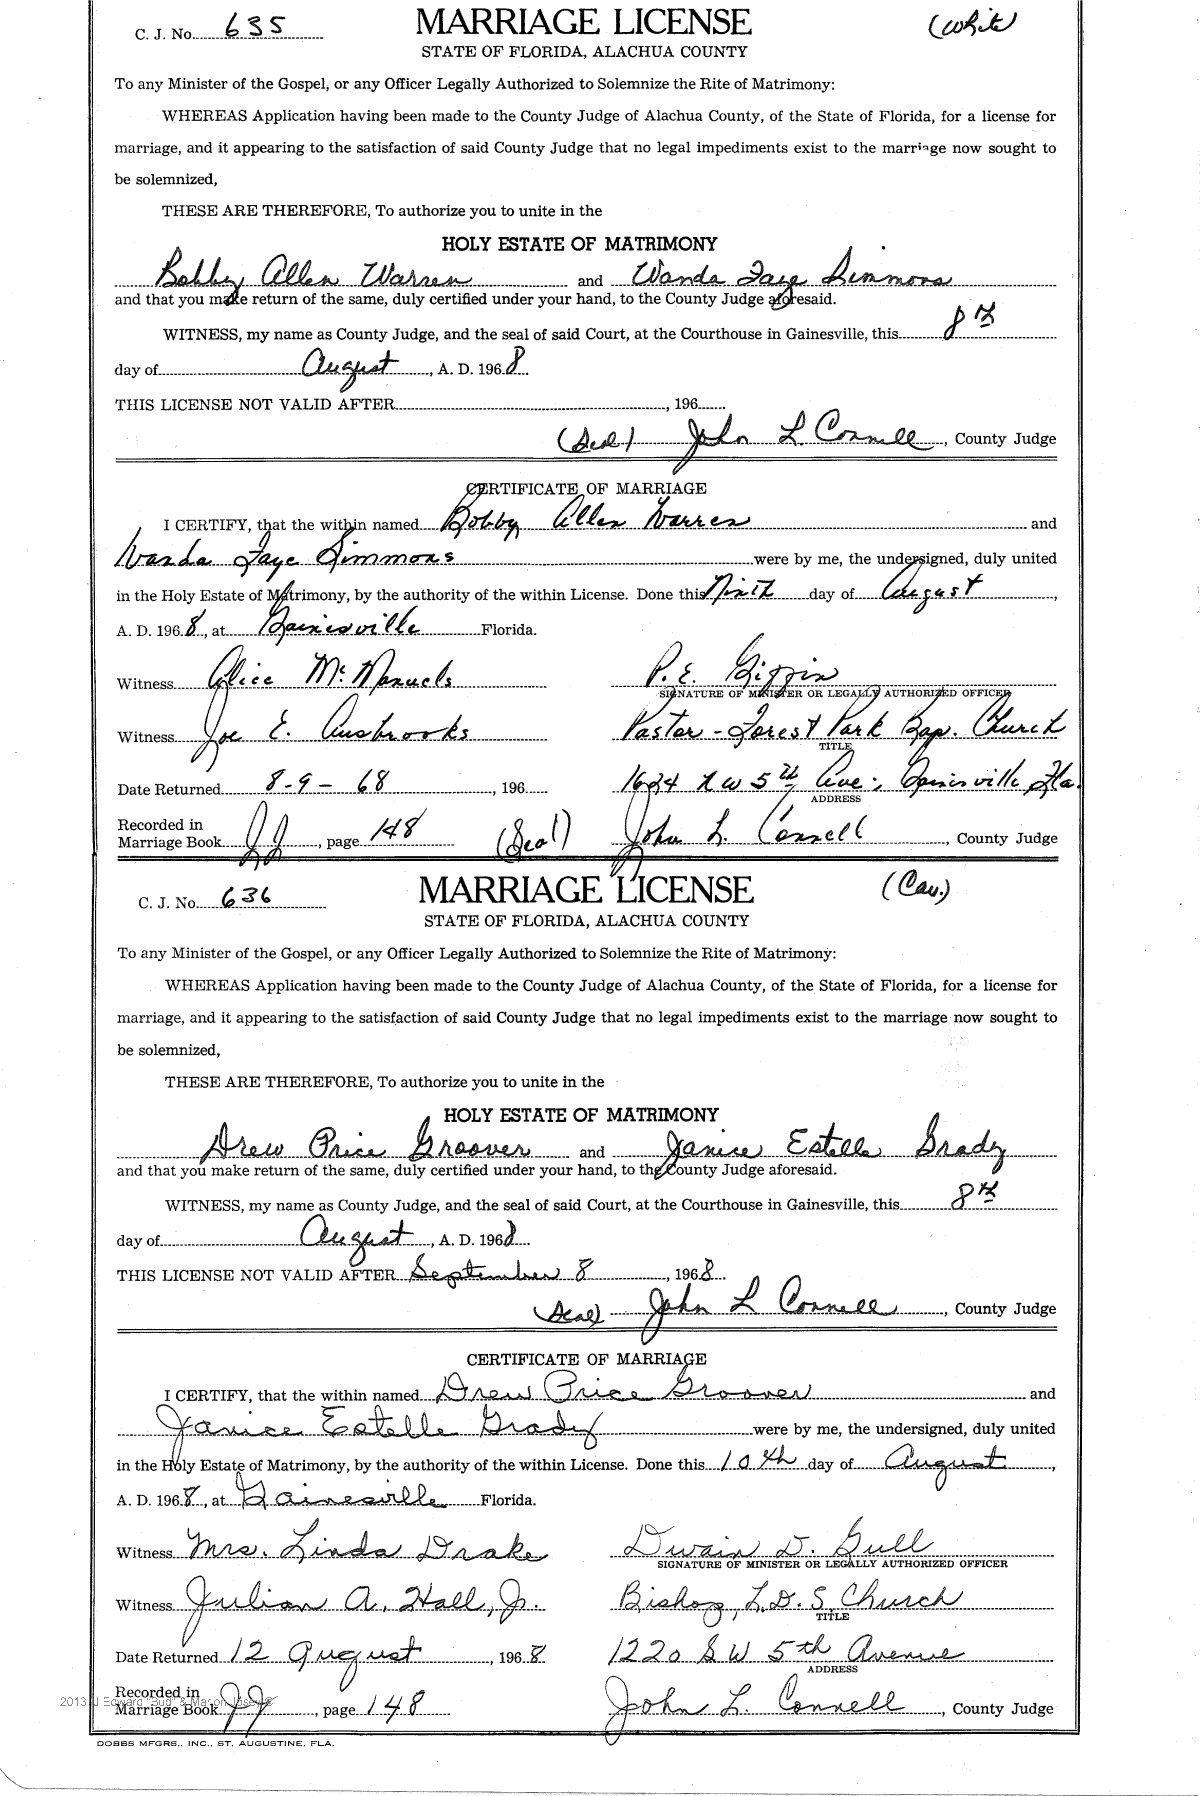 C. J. No. 635 MARRIAGE LICENSE (White)
STATE OF FLORIDA, ALACHUA COUNTY
To any Minister of the Gospel, or any Officer Legally Authorized to Solemnize the Rite of Matrimony:
WHEREAS Application having been made to the County Judge of Alachua County, of the State of Florida, for a license for
marriage, and it appearing to the satisfaction of said County Judge that no legal impediments exist to the marriage now sought to
be solemnized,
THESE ARE THEREFORE, To authorize you to unite in the
HOLY ESTATE OF MATRIMONY
Bobby Allen Warren and Wanda Faye Simmons
and that you make return of the same, duly certified under your hand, to the County Judge aforesaid.
WITNESS, my name as County Judge, and the seal of said Court, at the Courthouse in Gainesville, this 8th
day of August, A. D. 1968
THIS LICENSE NOT VALID AFTER , 196
(Seal) John L. Connell, County Judge
CERTIFICATE OF MARRIAGE
I CERTIFY, that the within named Bobby Allen Warren and
Wanda Faye Simmons were by me, the undersigned, duly united
in the Holy Estate of Matrimony, by the authority of the within License. Done this Ninth day of August,
A. D. 1968, at Gainesville Florida.
Witness Alice McManuels P. E. Giffin
SIGNATURE OF MINISTER OR LEGALLY AUTHORIZED OFFICER
Witness Joe E. Ausbrooks Pastor - Forest Park Bap. Church
TITLE
Date Returned 8-9-68, 196 1624 NW 5th Ave; Gainesville Fla.
ADDRESS
Recorded in
Marriage Book JJ, page 148 (Seal) John L. Connell, County Judge
C. J. No. 636 MARRIAGE LICENSE (Cau.)
STATE OF FLORIDA, ALACHUA COUNTY
To any Minister of the Gospel, or any Officer Legally Authorized to Solemnize the Rite of Matrimony:
WHEREAS Application having been made to the County Judge of Alachua County, of the State of Florida, for a license for
marriage, and it appearing to the satisfaction of said County Judge that no legal impediments exist to the marriage now sought to
be solemnized,
THESE ARE THEREFORE, To authorize you to unite in the
HOLY ESTATE OF MATRIMONY
Drew Price Groover and Janice Estelle Grady
and that you make return of the same, duly certified under your hand, to the County Judge aforesaid.
WITNESS, my name as County Judge, and the seal of said Court, at the Courthouse in Gainesville, this 8th
day of August, A. D. 1968
THIS LICENSE NOT VALID AFTER September 8, 1968
(Seal) John L Connell, County Judge
CERTIFICATE OF MARRIAGE
I CERTIFY, that the within named Drew Price Groover and
Janice Estelle Grady were by me, the undersigned, duly united
in the Holy Estate of Matrimony, by the authority of the within License. Done this 10th day of August,
A. D. 1968, at Gainesville Florida.
Witness Mrs. Linda Drake Dwain D. Gull
SIGNATURE OF MINISTER OR LEGALLY AUTHORIZED OFFICER
Witness Julian A. Hall, Jr. Bishop, L.D.S. Church
TITLE
Date Returned 12 August, 1968 1220 SW 5th Avenue
ADDRESS
Recorded in
Marriage Book JJ, page 148 John L. Connell, County Judge
DOBBS MFGRS., INC., ST. AUGUSTINE, FLA.